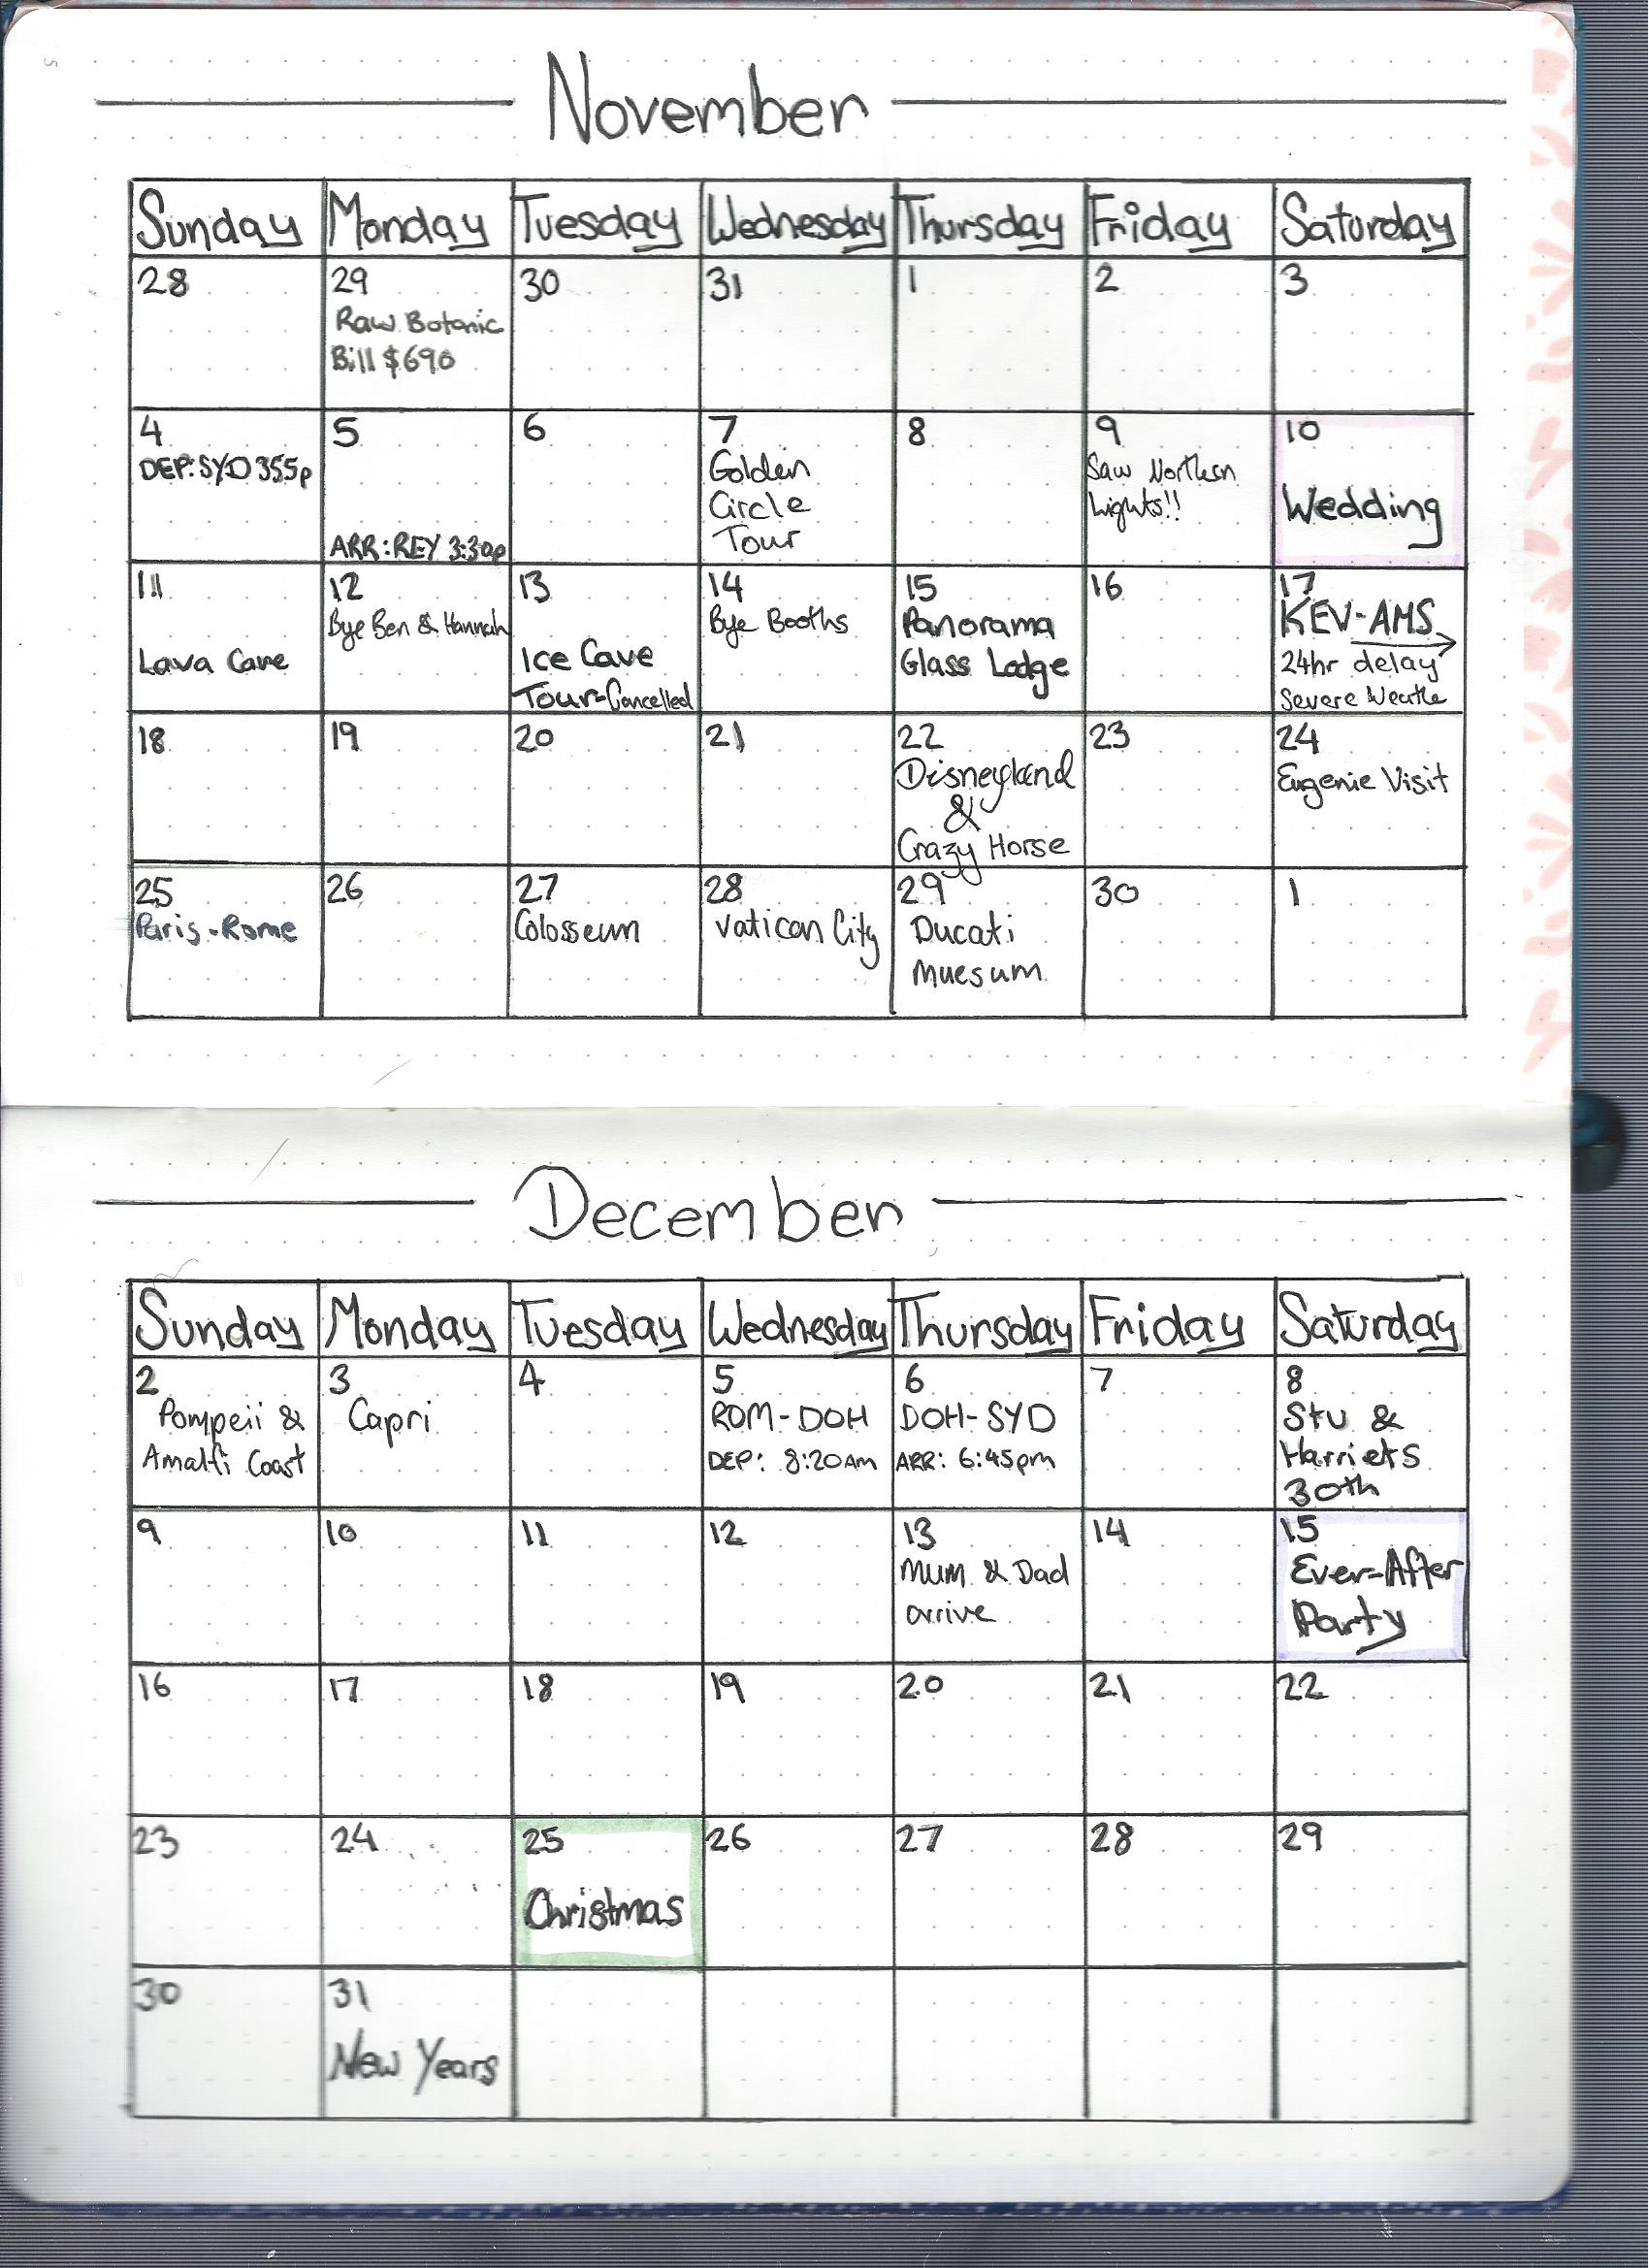 November
Sunday Monday Tuesday Wednesday Thursday Friday Saturday
28 29 30 31 1 2 3
Raw Botanic
Bill $690
4 5 6 7 8 9 10
DEP: SYD 355p
ARR: REY 3:30p
Golden
Circle
Tour
Saw Northern
Lights!!
Wedding
11 12 13 14 15 16 17
Lava Cave
Bye Ben & Hannah
Ice Cave
Tour-Cancelled
Bye Booths
Panorama
Glass Lodge
KEV-AMS
24hr delay
Severe Weathe
18 19 20 21 22 23 24
Disneyland
&
Crazy Horse
Eugenie Visit
25 26 27 28 29 30 1
Paris-Rome
Colosseum
Vatican City
Ducati
Muesum
December
Sunday Monday Tuesday Wednesday Thursday Friday Saturday
2 3 4 5 6 7 8
Pompeii &
Amalfi Coast
Capri
ROM-DOH
DEP: 8:20am
DOH-SYD
ARR: 6:45pm
Stu &
Harriets
30th
9 10 11 12 13 14 15
Mum & Dad
arrive
Ever-After
Party
16 17 18 19 20 21 22
23 24 25 26 27 28 29
Christmas
30 31
New Years